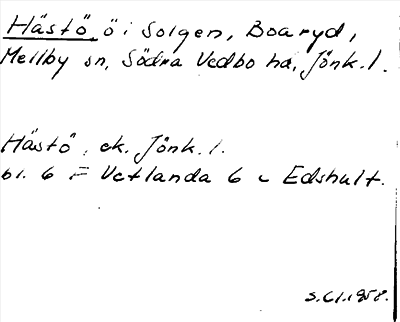 Hästö ö i Solgen, Boaryd,
Mellby sn, Södra Vedbo hd, Jönk. l.
Hästö, ek. Jönk. l.
bl. 6 = Vetlanda 6 c Edshult.
1958.